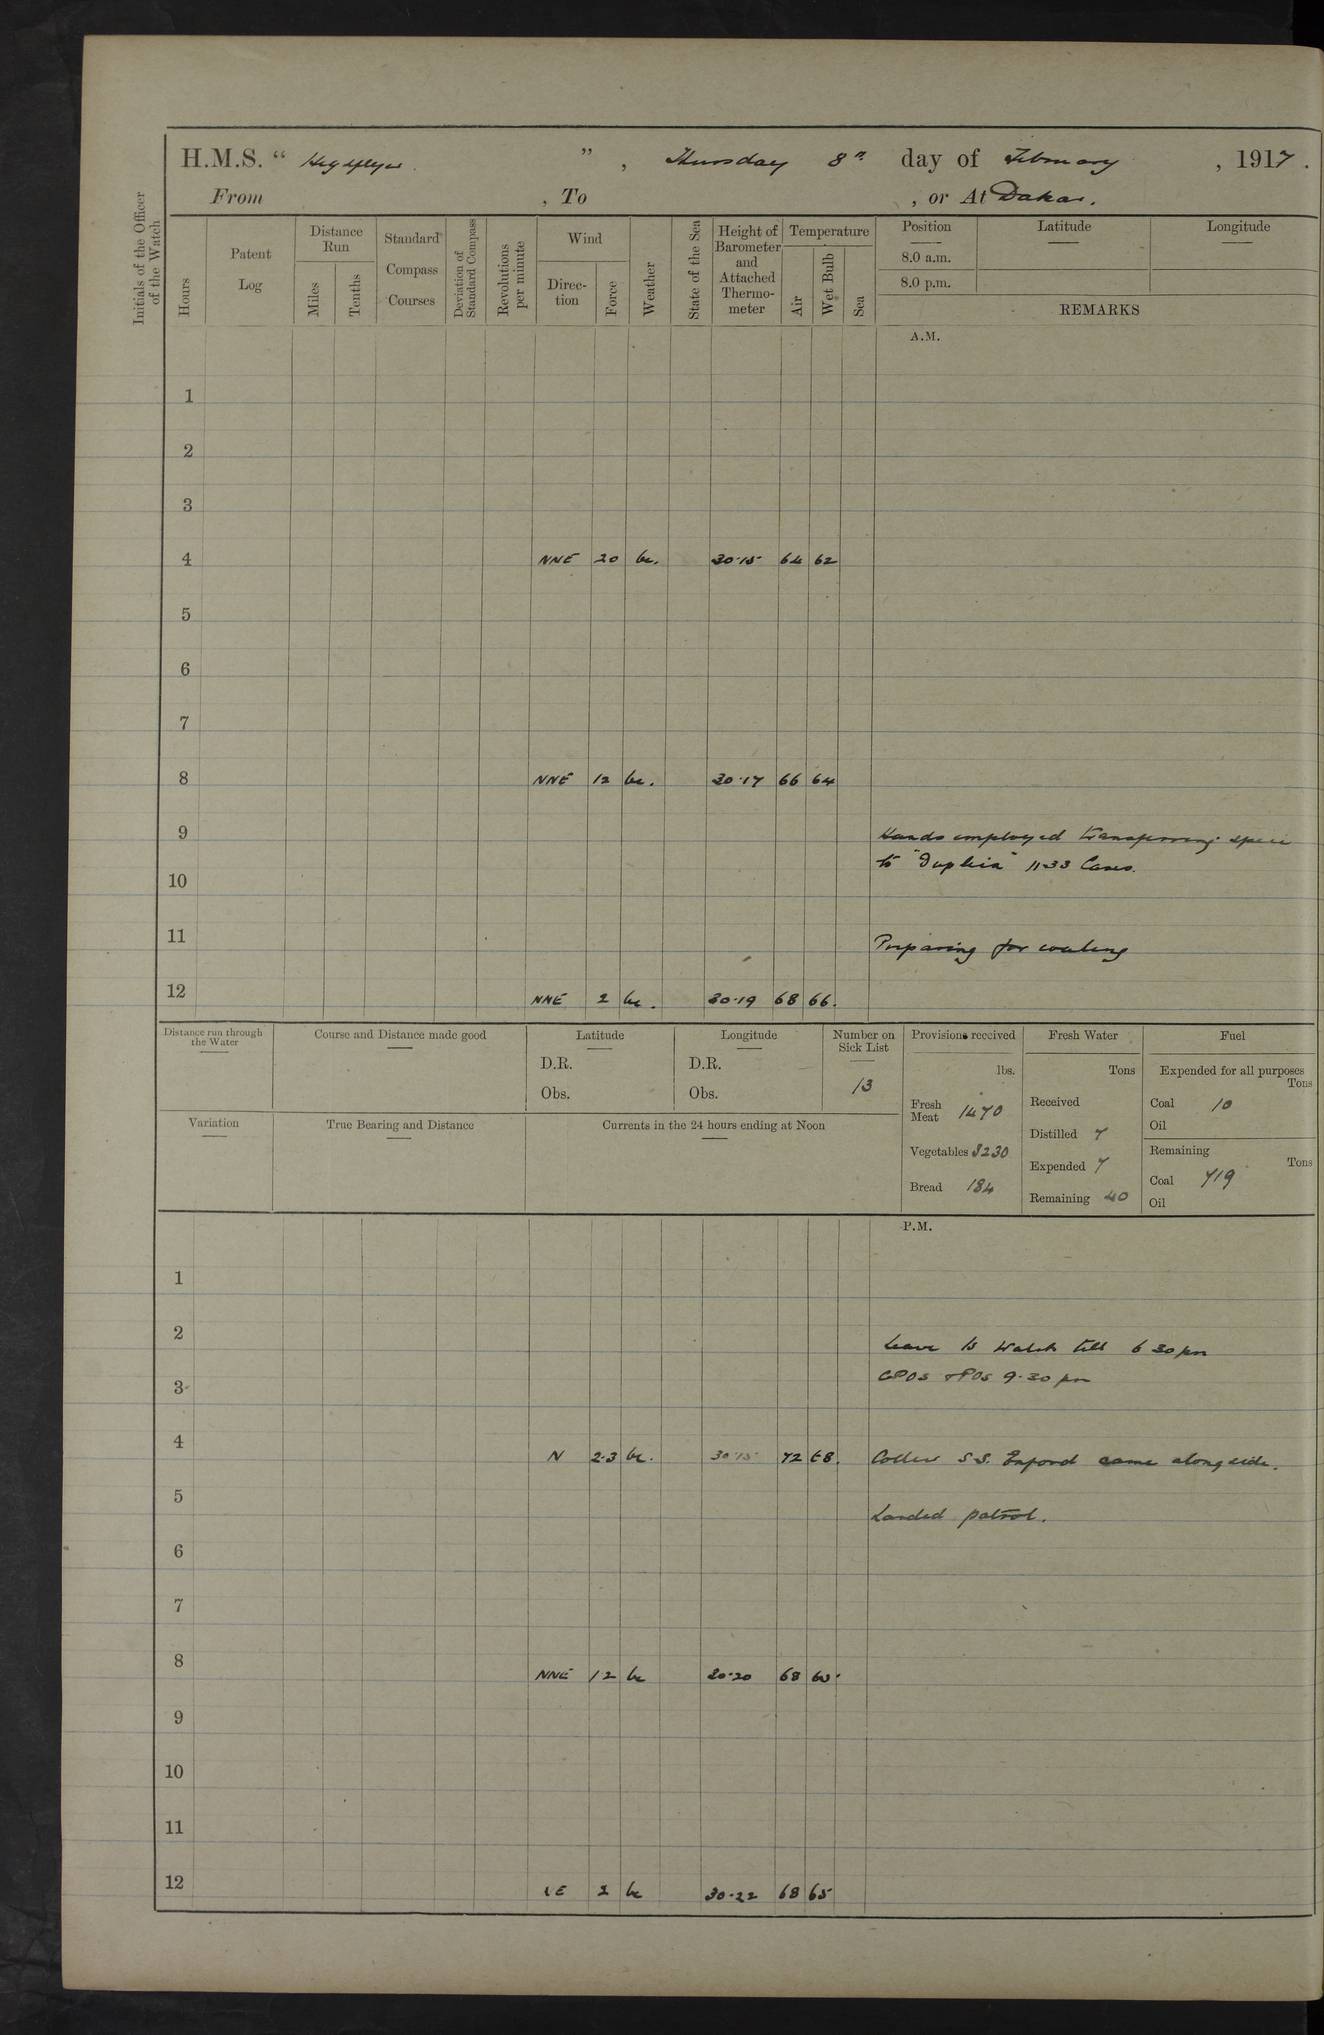 H.M.S. “ Highflyer ” , Thursday 8th day of February , 1917.
From , To , or At Dakar.
Initials of the Officer of the Watch
Hours
Patent Log
Distance Run
Miles
Tenths
Standard Compass Courses
Deviation of Standard Compass
Revolutions per minute
Wind
Direction
Force
Weather
State of the Sea
Height of Barometer and Attached Thermometer
Temperature
Air
Wet Bulb
Sea
Position Latitude Longitude
8.0 a.m.
8.0 p.m.
REMARKS
A.M.
1
2
3
4 NNE 20 bc. 30.15 64 62
5
6
7
8 NNE 12 bc. 30.17 66 64
9 Hands employed transferring specie
to "Duplex" 1133 Cases.
10
11 Preparing for coaling
12 NNE 2 bc. 30.19 68 66.
Distance run through the Water
Course and Distance made good
Latitude
D.R.
Obs.
Longitude
D.R.
Obs.
Number on Sick List
13
Variation
True Bearing and Distance
Currents in the 24 hours ending at Noon
Provisions received
lbs.
Fresh Meat 1470
Vegetables 3230
Bread 184
Fresh Water
Tons
Received
Distilled 7
Expended 7
Remaining 40
Fuel
Expended for all purposes
Tons
Coal 10
Oil
Remaining
Tons
Coal 719
Oil
P.M.
1
2 Leave to Watch till 6 30 pm
CPOs & POs 9.30 pm
3
4 N 2.3 bc. 30.15 72 68. Collier S.S. Enford came alongside.
5 Landed patrol.
6
7
8 NNE 12 bc 30.20 68 65.
9
10
11
12 E 2 bc 30.22 68 65